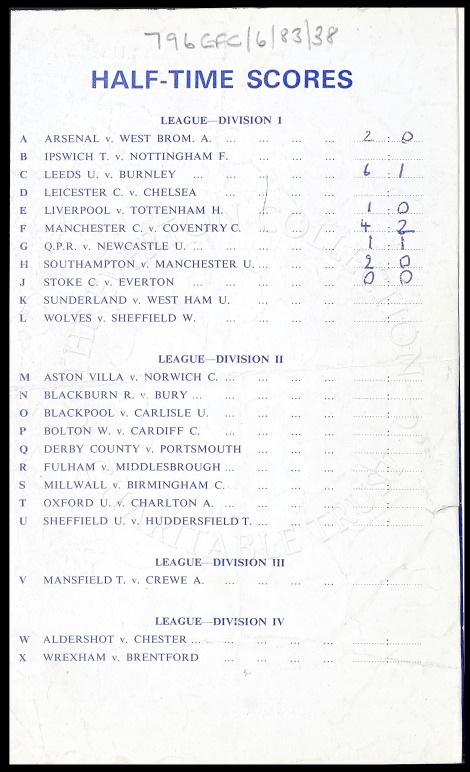 796 EFC/6/83/38
HALF-TIME SCORES
LEAGUE—DIVISION 1
A ARSENAL v. WEST BROM. A. ... ... ... ... 2 : 0
B IPSWICH T. v. NOTTINGHAM F. ... ... ... :
C LEEDS U. v. BURNLEY ... ... ... ... ... 6 : 1
D LEICESTER C. v. CHELSEA ... ... ... ... :
E LIVERPOOL v. TOTTENHAM H. ... ... ... 1 : 0
F MANCHESTER C. v. COVENTRY C. ... ... ... 4 : 2
G Q.P.R. v. NEWCASTLE U. ... ... ... ... ... 1 : 1
H SOUTHAMPTON v. MANCHESTER U. ... ... ... 2 : 0
J STOKE C. v. EVERTON ... ... ... ... ... 0 : 0
K SUNDERLAND v. WEST HAM U. ... ... ... :
L WOLVES v. SHEFFIELD W. ... ... ... ... :
LEAGUE—DIVISION II
M ASTON VILLA v. NORWICH C. ... ... ... ... :
N BLACKBURN R. v. BURY ... ... ... ... ... :
O BLACKPOOL v. CARLISLE U. ... ... ... ... :
P BOLTON W. v. CARDIFF C. ... ... ... ... :
Q DERBY COUNTY v. PORTSMOUTH ... ... ... :
R FULHAM v. MIDDLESBROUGH ... ... ... ... :
S MILLWALL v. BIRMINGHAM C. ... ... ... :
T OXFORD U. v. CHARLTON A. ... ... ... ... :
U SHEFFIELD U. v. HUDDERSFIELD T. ... ... ... :
LEAGUE—DIVISION III
V MANSFIELD T. v. CREWE A. ... ... ... ... :
LEAGUE—DIVISION IV
W ALDERSHOT v. CHESTER ... ... ... ... ... :
X WREXHAM v. BRENTFORD ... ... ... ... :